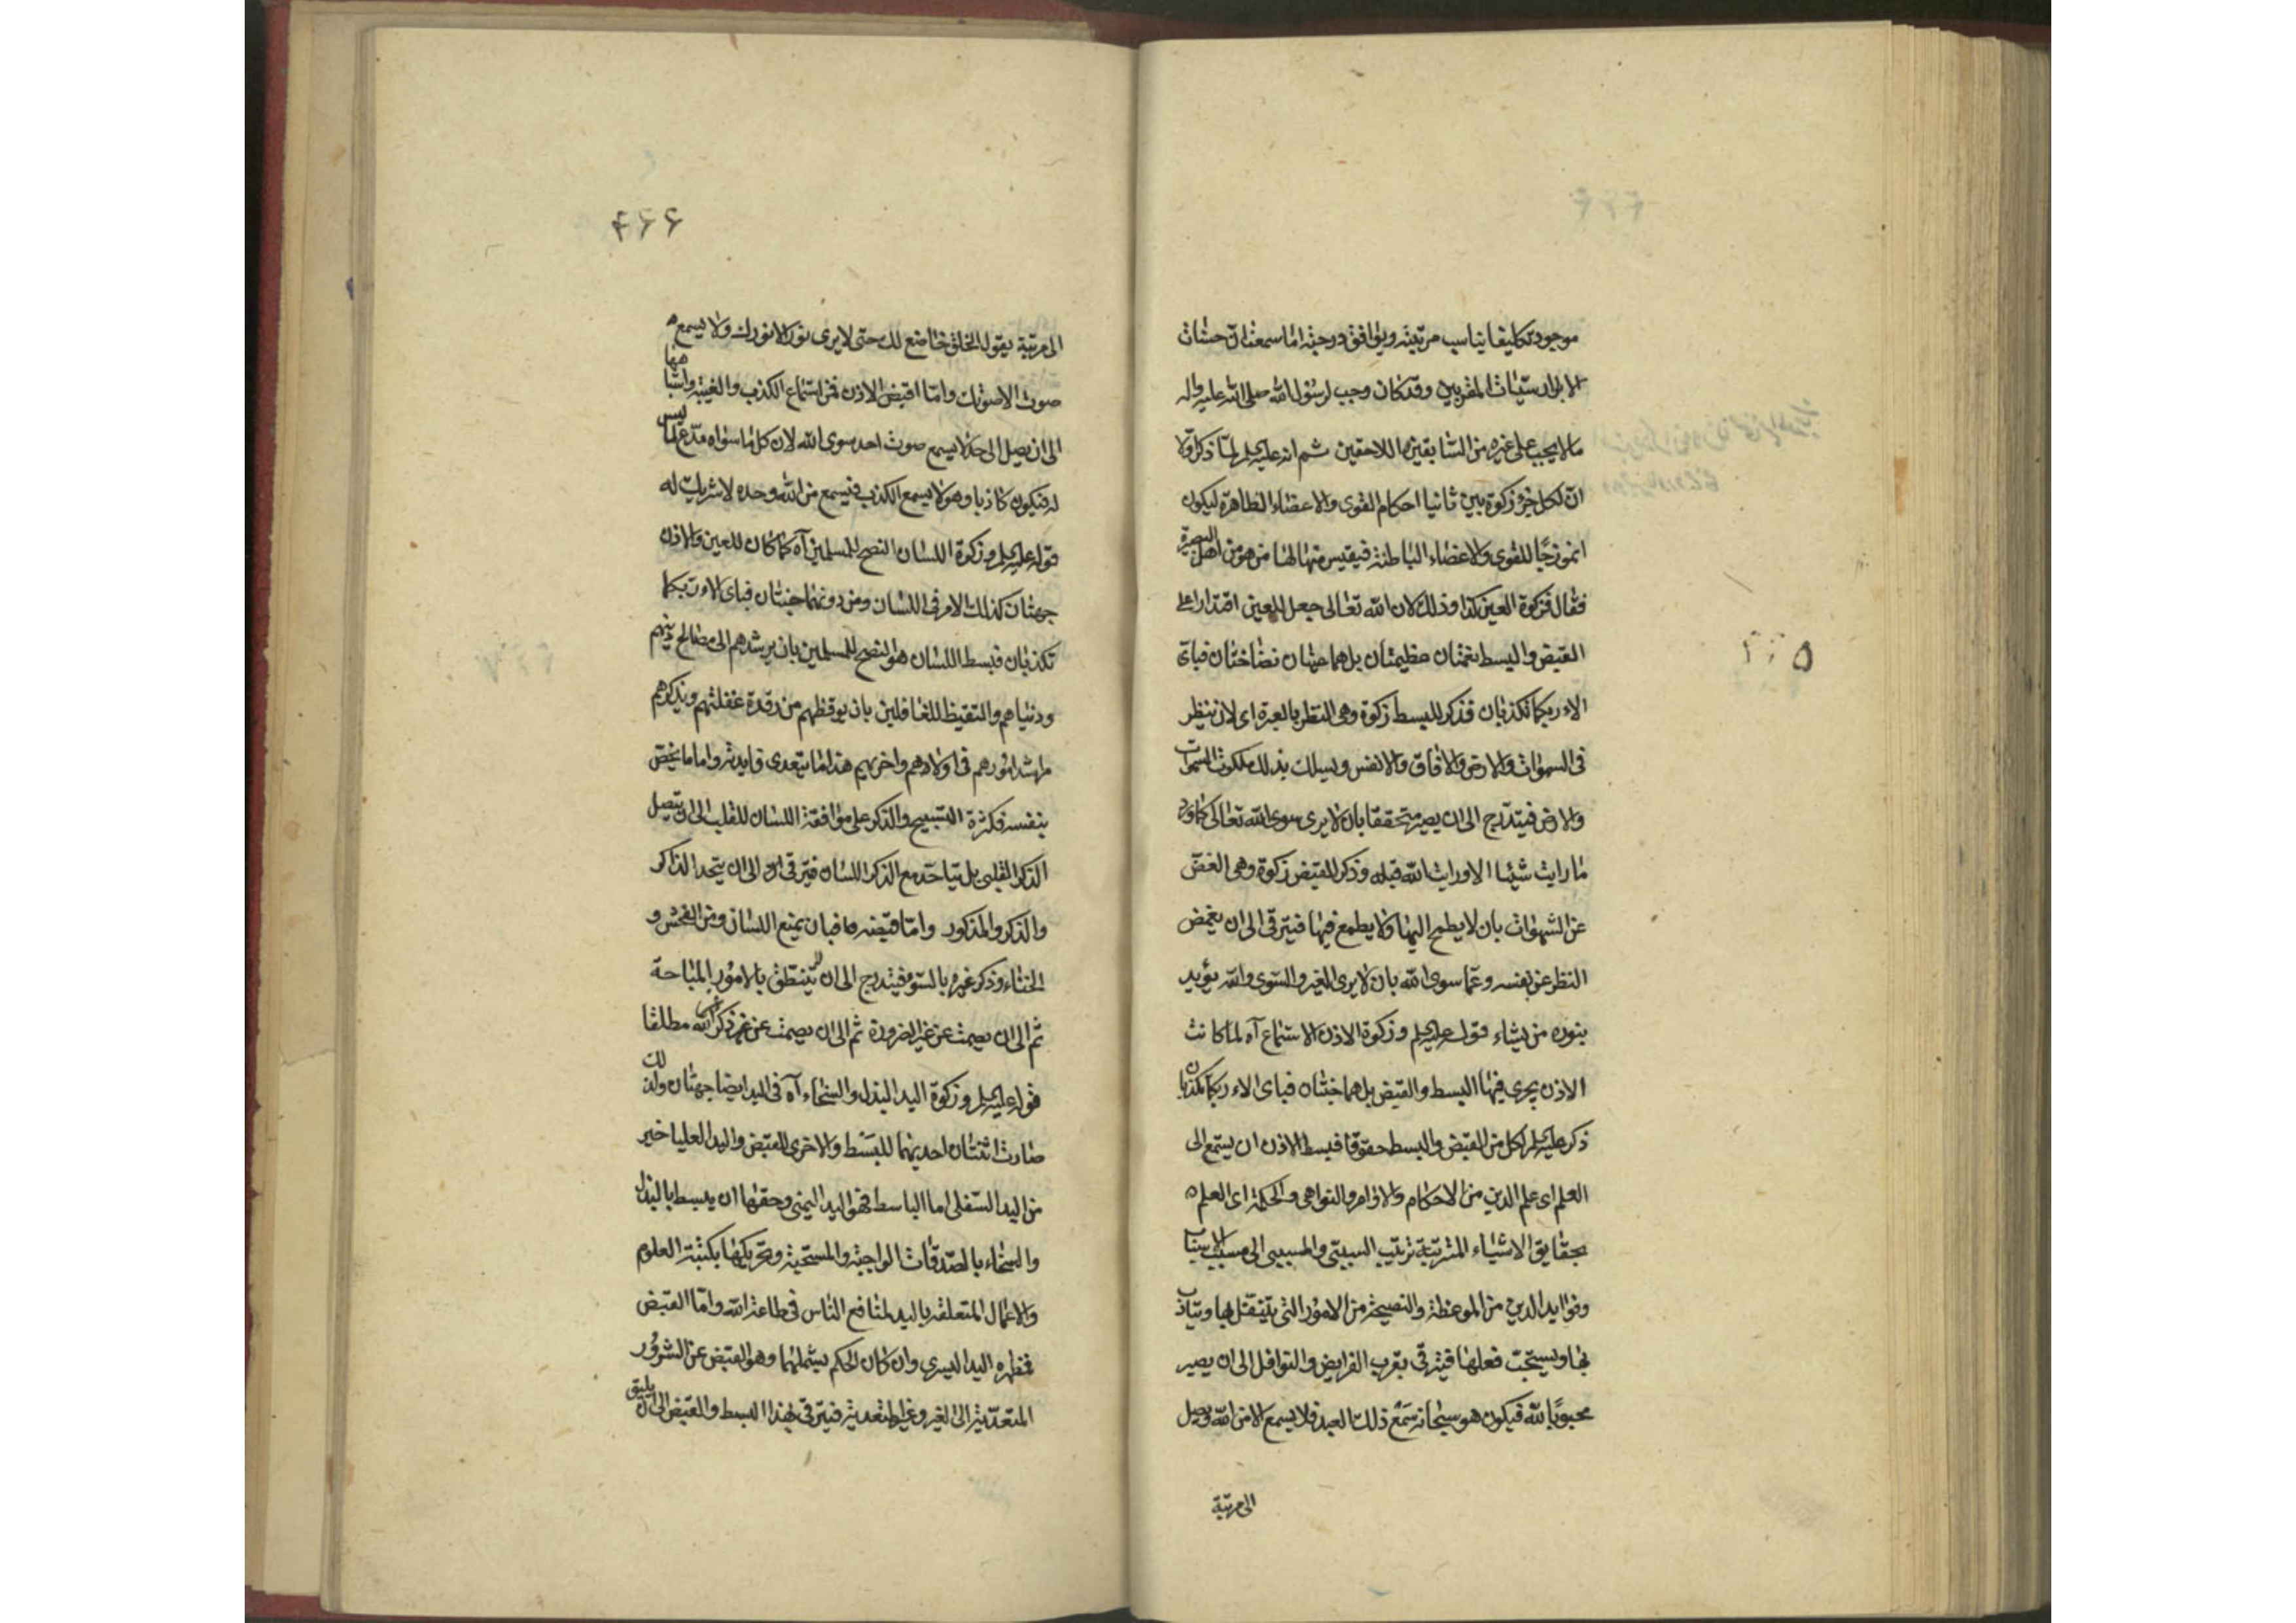 موجود تكليفا يناسب مرتبته ويوافق درجته اما سمعت ان حسنات
الابرار سيّئات المقربين وقد كان وجب لرسول الله صلى الله عليه واله
ما لا يجب على غيره من السابقين واللاحقين ثم انه عليه السلم لما ذكر اولا
ان لكل جزء زكوة بين ثانيا احكام القوى والاعضاء الظاهرة ليكون
انموزجًا للقوى والاعضاء الباطنة فيقيس منها لها من هو من اهل البصيرة
فقال فزكوة العين كذا وذلك لان الله تعالى جعل للعين اقتدارا على
القبض والبسط نعمتان عظيمتان بل هما عينان نضاختان فباى
الاء ربكما تكذبان فذكر للبسط زكوة وهى النظر بالعبرة اى لان ينظر
فى السموات والارض والافاق والانفس ويسلك بذلك ملكوت السموات
والارض فيتدرج الى ان يصير متحققا بان لا يرى سوى الله تعالى كما ورد
ما رايت شيئا الا ورايت الله قبله وذكر للقبض زكوة وهى الغض
عن الشهوات بان لا يطمح اليها ولا يطمع فيها فيترقى الى ان يغمض
النظر عن نفسه وعما سوى الله بان لا يرى الغير والسوى والله يؤيد
بنوره من يشاء قوله عليه السلم وزكوة الاذن الاستماع آه لما كانت
الاذن يجرى فيها البسط والقبض بل هما جنتان فباى الاء ربكما تكذبان
ذكر عليه السلم لكل من القبض والبسط حقوقا فبسط الاذن ان يستمع الى
العلم اى علم الدين من الاحكام والاوامر والنواهى والحكمة اى العلم
بحقايق الاشياء المترتبة ترتيب السببى والمسببى الى مسبب الاسباب
وفوايد الدين من الموعظة والنصيحة من الامور التى يتنفل بها ويثاب
بها ويستحب فعلها فيترقى بقرب الفرايض والنوافل الى ان يصير
محبوبًا لله فيكون هو سبحانه سَمْعَ ذلك العبد فلا يسمع الا من الله ويصل
الى مرتبة
۴۶۶
الى مرتبة يقول الخلق خاضع لك حتى لا يرى نور الا نورك ولا يسمع
صوت الا صوتك واما اقبض الاذن فمن استماع الكذب والغيبة واشباهها
الى ان يصل الى حد لا يسمع صوت احد سوى الله لان كل ما سواه مدع لما ليس
له فيكون كاذبا وهو لا يسمع الكذب فيسمع من الله وحده لا شريك له
قوله عليه السلم وزكوة اللسان النصح للمسلمين آه كما كان للعين والاذن
جهتان كذلك الامر فى اللسان ومن دونهما جنتان فباى الاء ربكما
تكذبان فبسط اللسان هو النصح للمسلمين بان يرشدهم الى مصالح دينهم
ودنياهم والتقيظ للغافلين بان يوقظهم من رقدة غفلتهم ويذكرهم
مراشد امورهم فى اولادهم واخريهم هذا ما يتعدى فايدته واما ما يخص
بنفسه فكثرة التسبيح والذكر على موافقة اللسان للقلب الى ان يتصل
الذكر القلبى بل يتاحد مع الذكر اللسان فيترقى الى ان يتحد الذاكر
والذكر والمذكور واما قبضه فبان يمنع اللسان ومن الفحش و
الخناء وذكر غيره بالسوء فيتدرج الى ان لا يتنطق بالامور المباحة
ثم الى ان يصمت عن غير الضرورة ثم الى ان يصمت عن غير ذكر الله مطلقا
قوله عليه السلم وزكوة اليد البذل والسخاء آه فى اليد ايضا جهتان ولذلك
صارت اثنتان احديهما للبَسْط والاخرى للقبض واليد العليا خير
من اليد السفلى اما الباسط فهو اليد اليمنى وحقها ان يبسط بالبذل
والسخاء بالصدقات الواجبة والمستحبة وتحريكها بكتبة العلوم
والاعمال المتعلقه باليد لمنافع الناس فى طاعة الله واما القبض
فمظهره اليد اليسرى وان كان الحكم يشملهما وهو القبض عن الشرور
المتعدّية الى الغير وغير المتعدية فيترقى بهذا البسط والقبض الى ان يليق